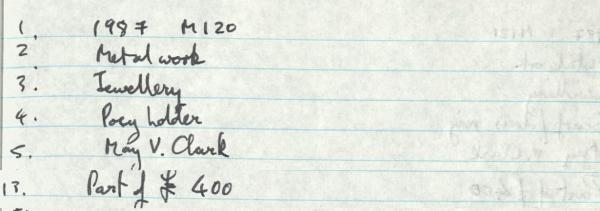 1. 1987 M120
2 Metal work
3. Jewellery
4. Posy holder
5. May V. Clark
13. Part of £ 400